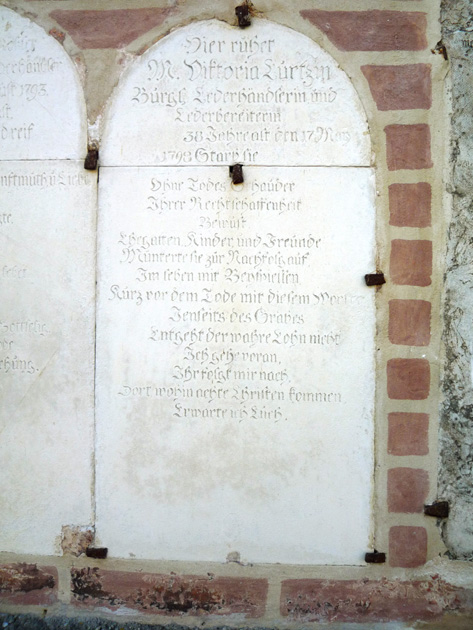 Hier ruhet
M. Viktoria Lürtzin
Bürgl. Lederhandlerin und
Lederbereiterin
38 Jahre alt den 17 May
1798 Starb sie
Ohne Todes Schauder
Ihrer Rechtschaffenheit
Bewust
Ehegatten Kinder, und Freunde
Munterte sie zur Nachfolg auf
Im leben mit Beyspiellen
Kurz vor dem Tode mit diesem Worten
Jenseits des Grabes
Entgeht der wahre Lohn nicht
Ich gehe voran,
Ihr folgt mir nach.
Dort wohin achte Christen kommen
Erwarte ich Euch.